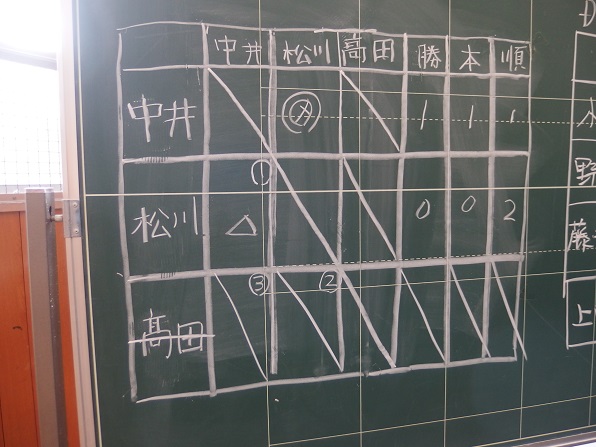 中井 松川 高田 勝 本 順
中井 メ 1 1 1
①
松川 △ 0 0 2
③ ②
高田
D
本
野
藤
上